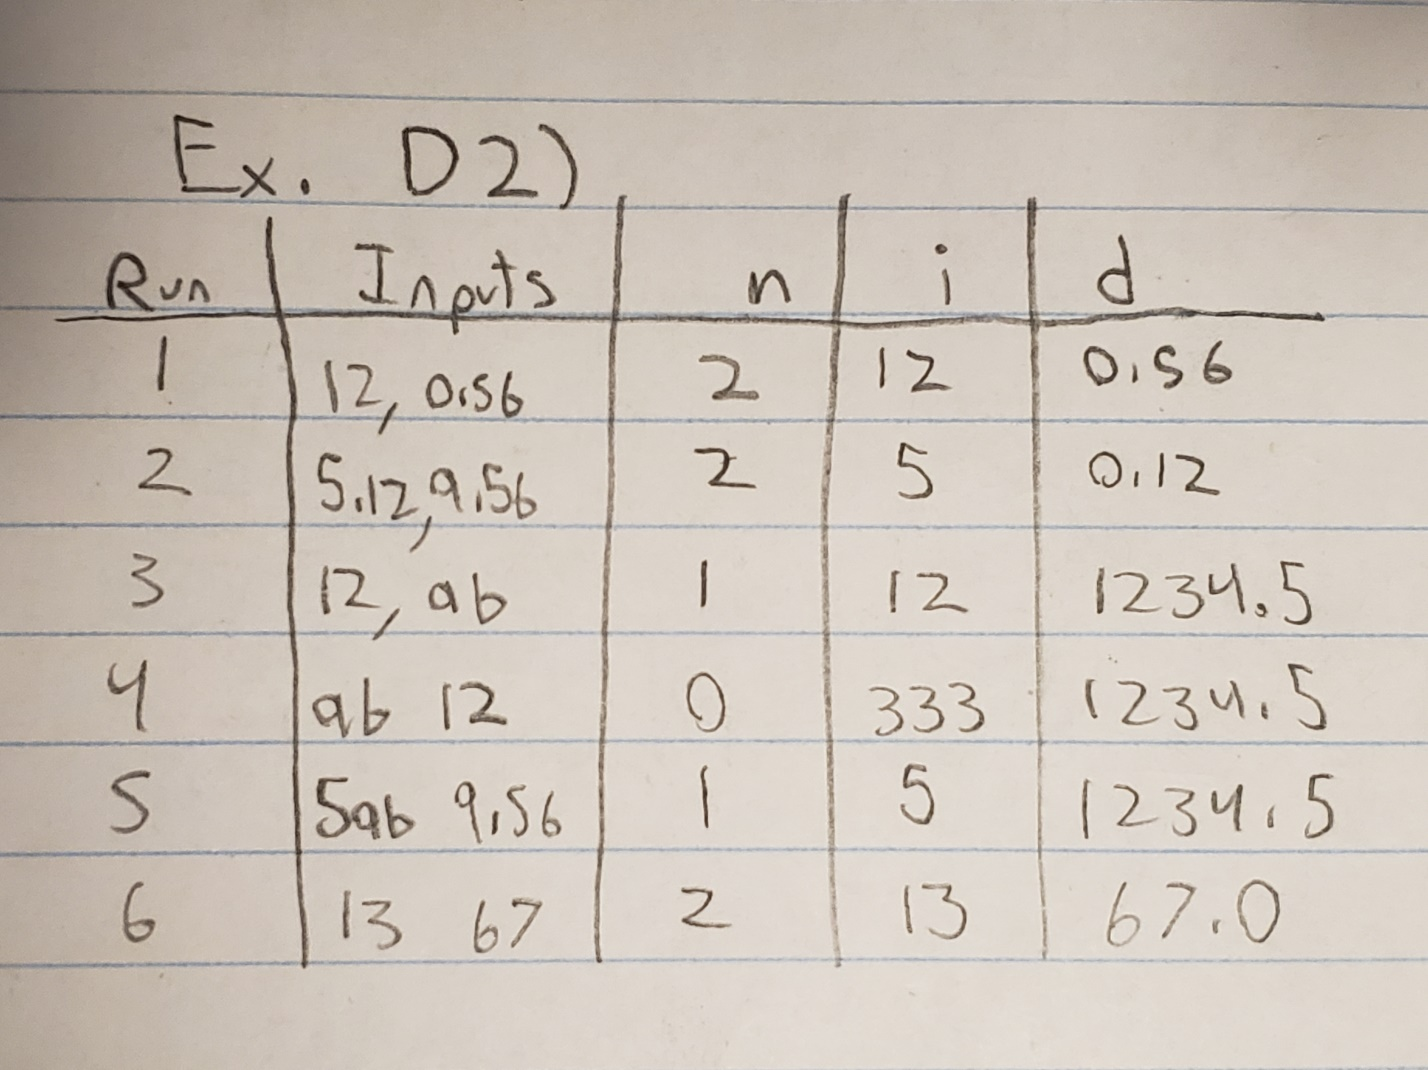 Ex. D2)
Run Inputs n i d
1 12, 0.56 2 12 0.56
2 5.12, 9.56 2 5 0.12
3 12, ab 1 12 1234.5
4 ab 12 0 333 1234.5
5 5ab 9.56 1 5 1234.5
6 13 67 2 13 67.0